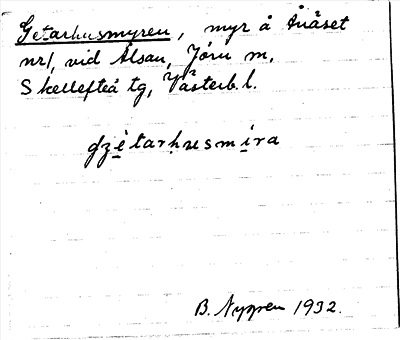 Getarhusmyren, myr å Åliåset
nr 1, vid Ålsan, Jörn sn,
Skellefteå tg, Västerb. l.
gzètarhusmìra
B. Nygren 1932.